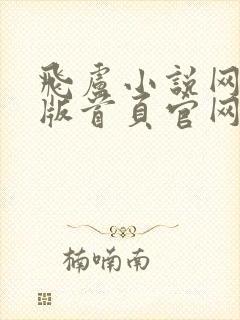 飛盧小説网
版首頁官网
楠喃南